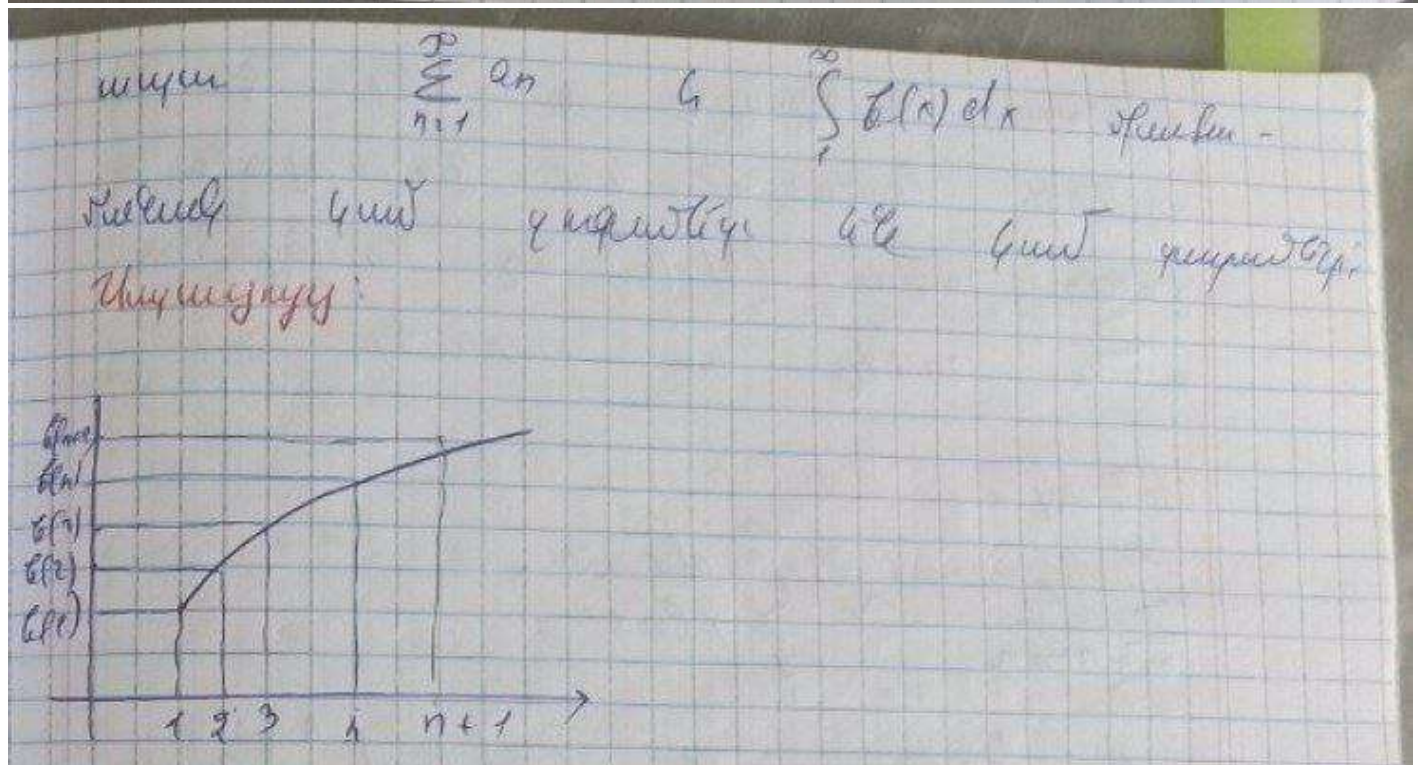 ապա \sum_{n=1}^{\infty} a_n և \int_{1}^{\infty} f(x) dx միաժա-
մանակ կամ զուգամետ են կամ տարամետ են։
Ապացույց։
f(n+1)
f(n)
f(3)
f(2)
f(1)
1 2 3 n n+1